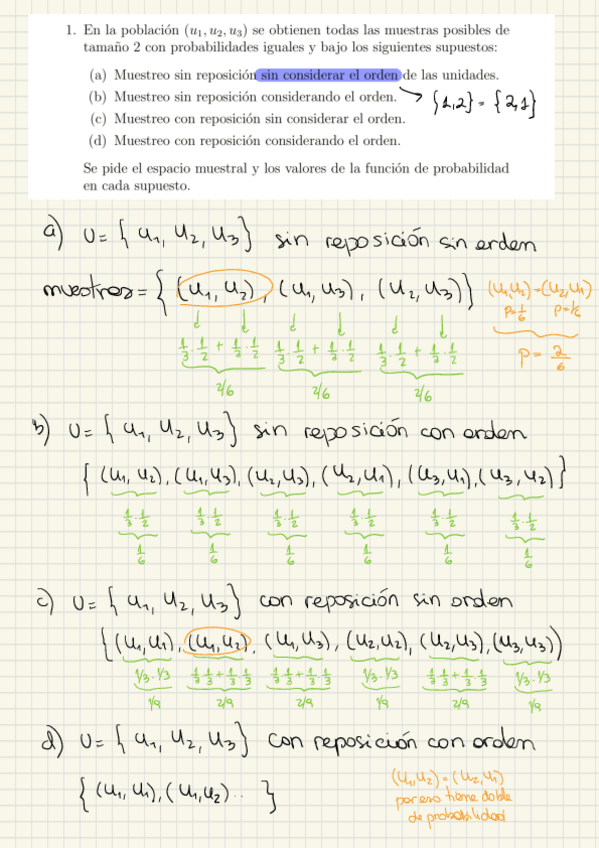 1. En la población (u₁, u₂, u₃) se obtienen todas las muestras posibles de
tamaño 2 con probabilidades iguales y bajo los siguientes supuestos:
(a) Muestreo sin reposición sin considerar el orden de las unidades.
(b) Muestreo sin reposición considerando el orden.
{1,2} = {2,1}
(c) Muestreo con reposición sin considerar el orden.
(d) Muestreo con reposición considerando el orden.
Se pide el espacio muestral y los valores de la función de probabilidad
en cada supuesto.
a) U = { u₁, u₂, u₃ } sin reposición sin orden
muestras = { (u₁, u₂), (u₁, u₃), (u₂, u₃) } (u₁,u₂)=(u₂,u₁)
p=1/6 p=1/6
1/3 · 1/2 + 1/3 · 1/2 1/3 · 1/2 + 1/3 · 1/2 1/3 · 1/2 + 1/3 · 1/2 p = 2/6
2/6 2/6 2/6
b) U = { u₁, u₂, u₃ } sin reposición con orden
{ (u₁, u₂), (u₁, u₃), (u₂, u₃), (u₂, u₁), (u₃, u₁), (u₃, u₂) }
1/3 · 1/2 1/3 · 1/2 1/3 · 1/2 1/3 · 1/2 1/3 · 1/2 1/3 · 1/2
1/6 1/6 1/6 1/6 1/6 1/6
c) U = { u₁, u₂, u₃ } con reposición sin orden
{ (u₁, u₁), (u₁, u₂), (u₁, u₃), (u₂, u₂), (u₂, u₃), (u₃, u₃) )
1/3 · 1/3 1/3 · 1/3 + 1/3 · 1/3 1/3 · 1/3 + 1/3 · 1/3 1/3 · 1/3 1/3 · 1/3 + 1/3 · 1/3 1/3 · 1/3
1/9 2/9 2/9 1/9 2/9 1/9
d) U = { u₁, u₂, u₃ } con reposición con orden
{ (u₁, u₁), (u₁, u₂) .. }
(u₁, u₂) = (u₂, u₁)
por eso tiene doble
de probabilidad